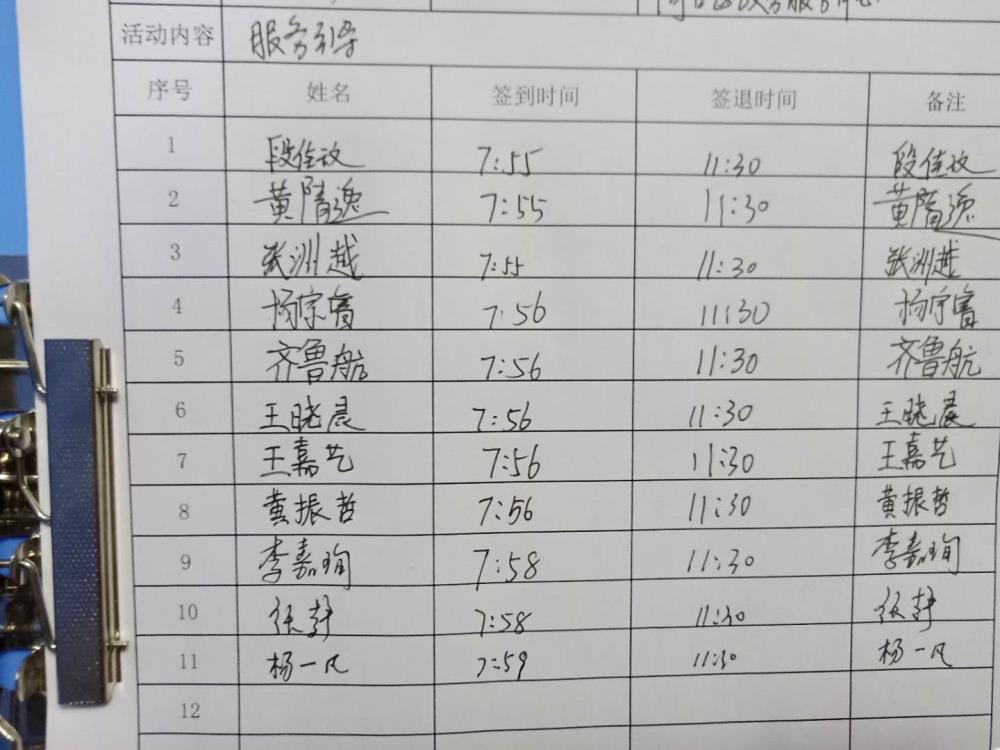 活动内容 服务引导
序号 姓名 签到时间 签退时间 备注
1 段佳玫 7:55 11:30 段佳玫
2 黄隋逸 7:55 11:30 黄隋逸
3 张洲越 7:55 11:30 张洲越
4 杨宗睿 7:56 11:30 杨宗睿
5 齐鲁航 7:56 11:30 齐鲁航
6 王晓晨 7:56 11:30 王晓晨
7 王嘉艺 7:56 11:30 王嘉艺
8 黄振哲 7:56 11:30 黄振哲
9 李嘉珣 7:58 11:30 李嘉珣
10 张静 7:58 11:30 张静
11 杨一凡 7:59 11:30 杨一凡
12